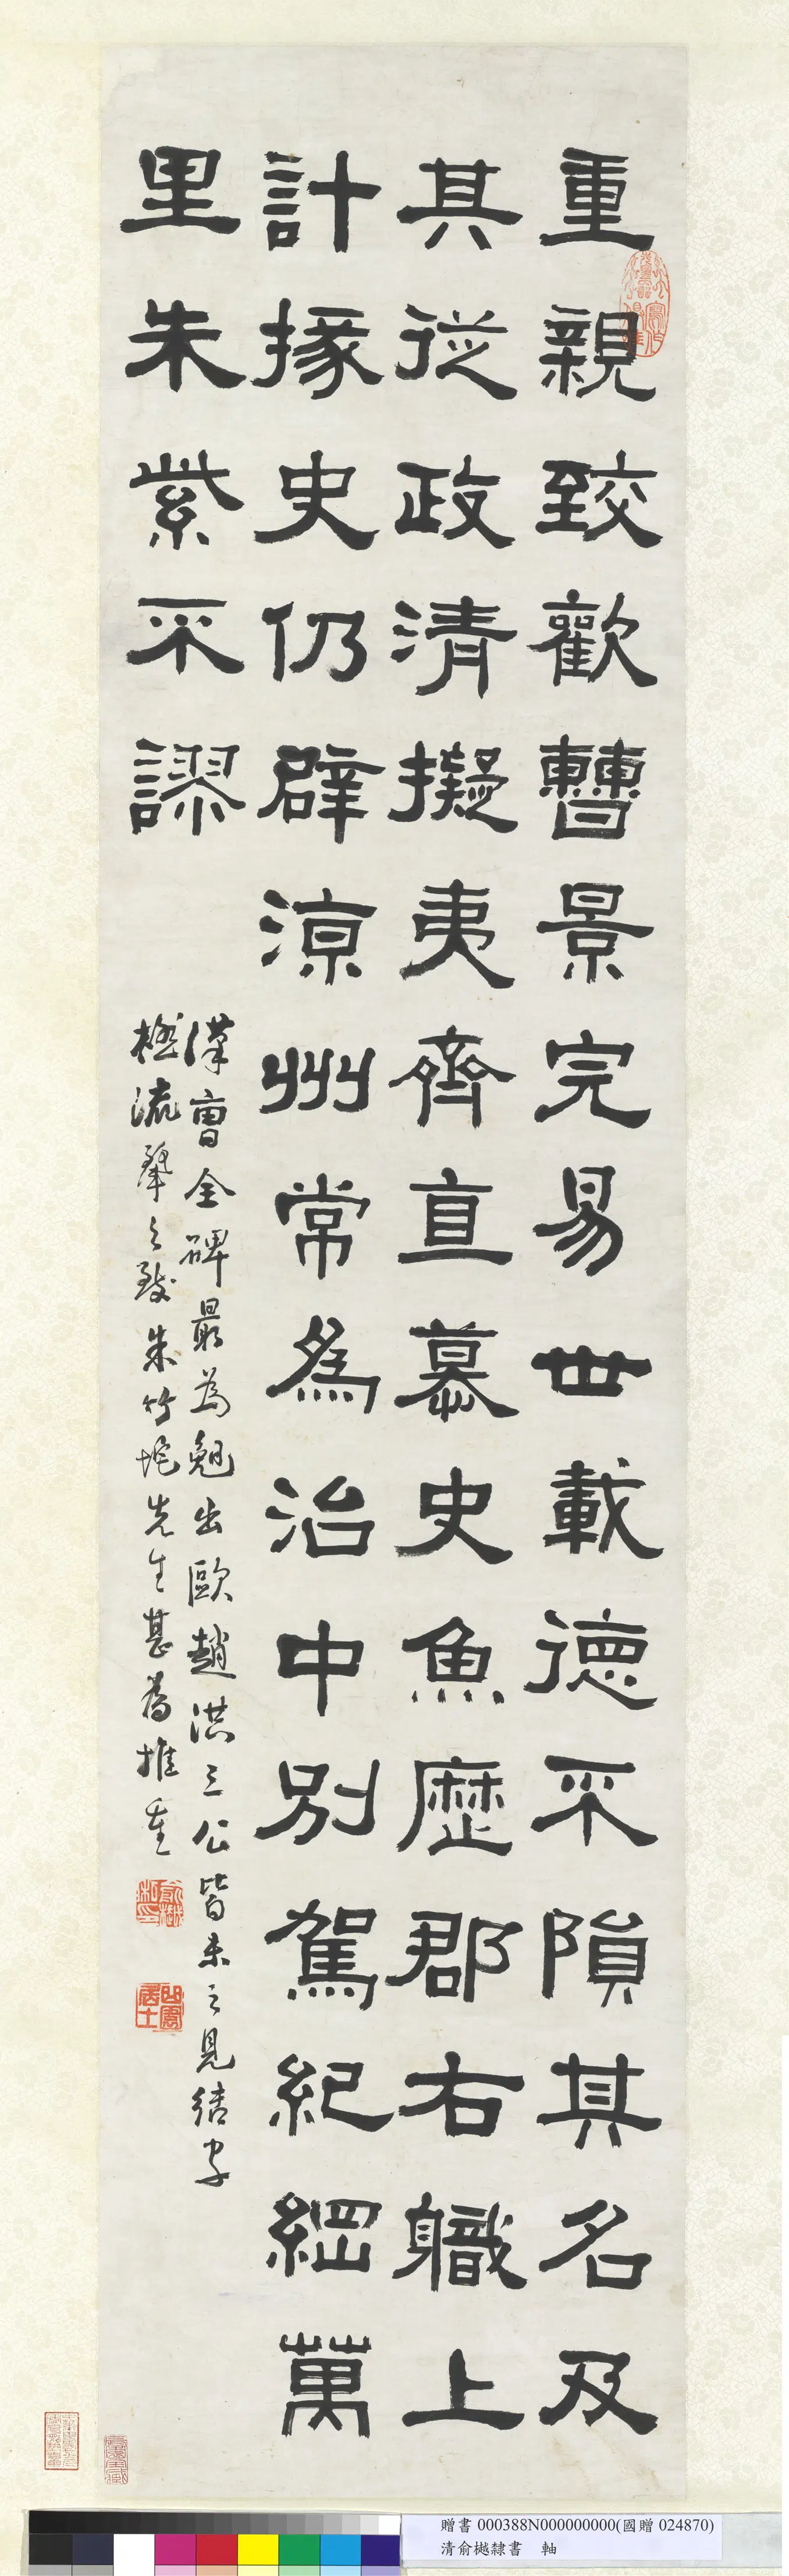 重親致歡曹景完易世載德不隕其名及
其從政清擬夷齊直慕史魚歷郡右職上
計掾史仍辟涼州常為治中別駕紀綱萬
里朱紫不謬
漢曹全碑最為晚出歐趙洪三公皆未之見結字
極流麗之致朱竹垞先生甚為推重
曲園居士
贈書 000388N000000000(國贈 024870)
清俞樾隸書　軸